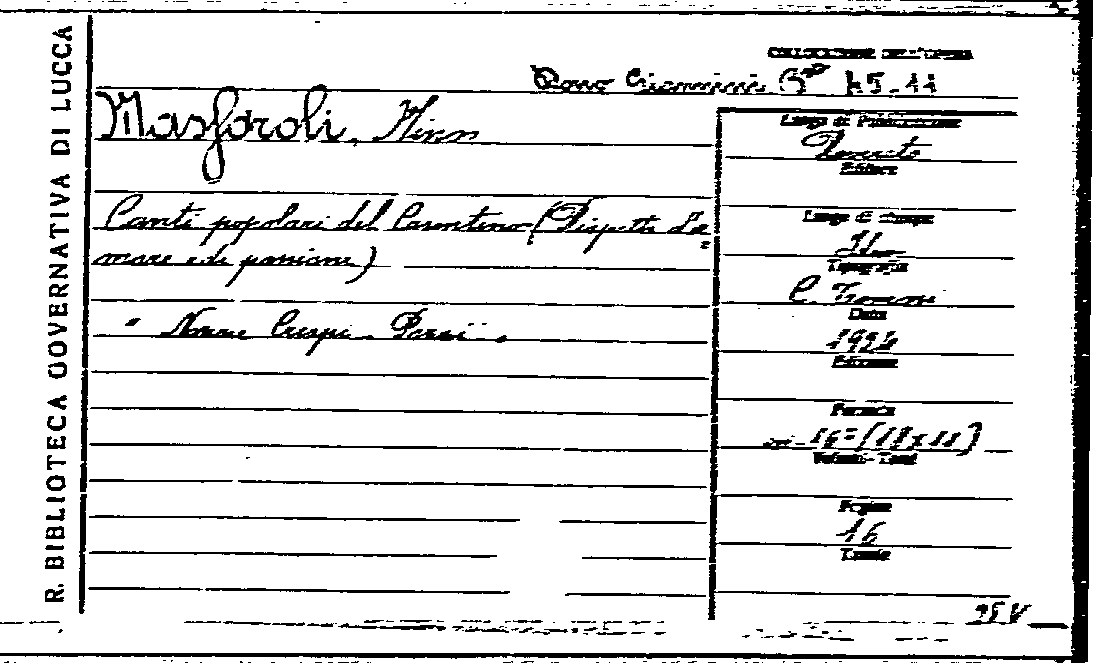 R. BIBLIOTECA GOVERNATIVA DI LUCCA
COLLOCAZIONE DELL'OPERA
Dono Giannini 45-11
Masfaroli,
Canti popolari del Casentino (Dispetti d'a=
more e di passione)
" Nozze Crespi - Pazzi ".
Luogo di Pubblicazione
Rovereto
Editore
Luogo di stampa
Tipografia
Data
1924
Edizione
Formato
in-16=(18x11)
Volumi - Tomi
Pagine
16
Tavole